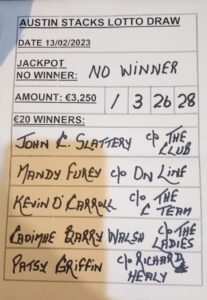 AUSTIN STACKS LOTTO DRAW
DATE 13/02/2023
JACKPOT
NO WINNER: NO WINNER
AMOUNT: €3,250 1 3 26 28
€20 WINNERS:
JOHN C. SLATTERY c/o THE CLUB
MANDY FUREY c/o ON LINE
KEVIN O'CARROLL c/o THE C TEAM
CAOIMHE BARRY WALSH c/o THE LADIES
PATSY GRIFFIN c/o RICHARD HEALY